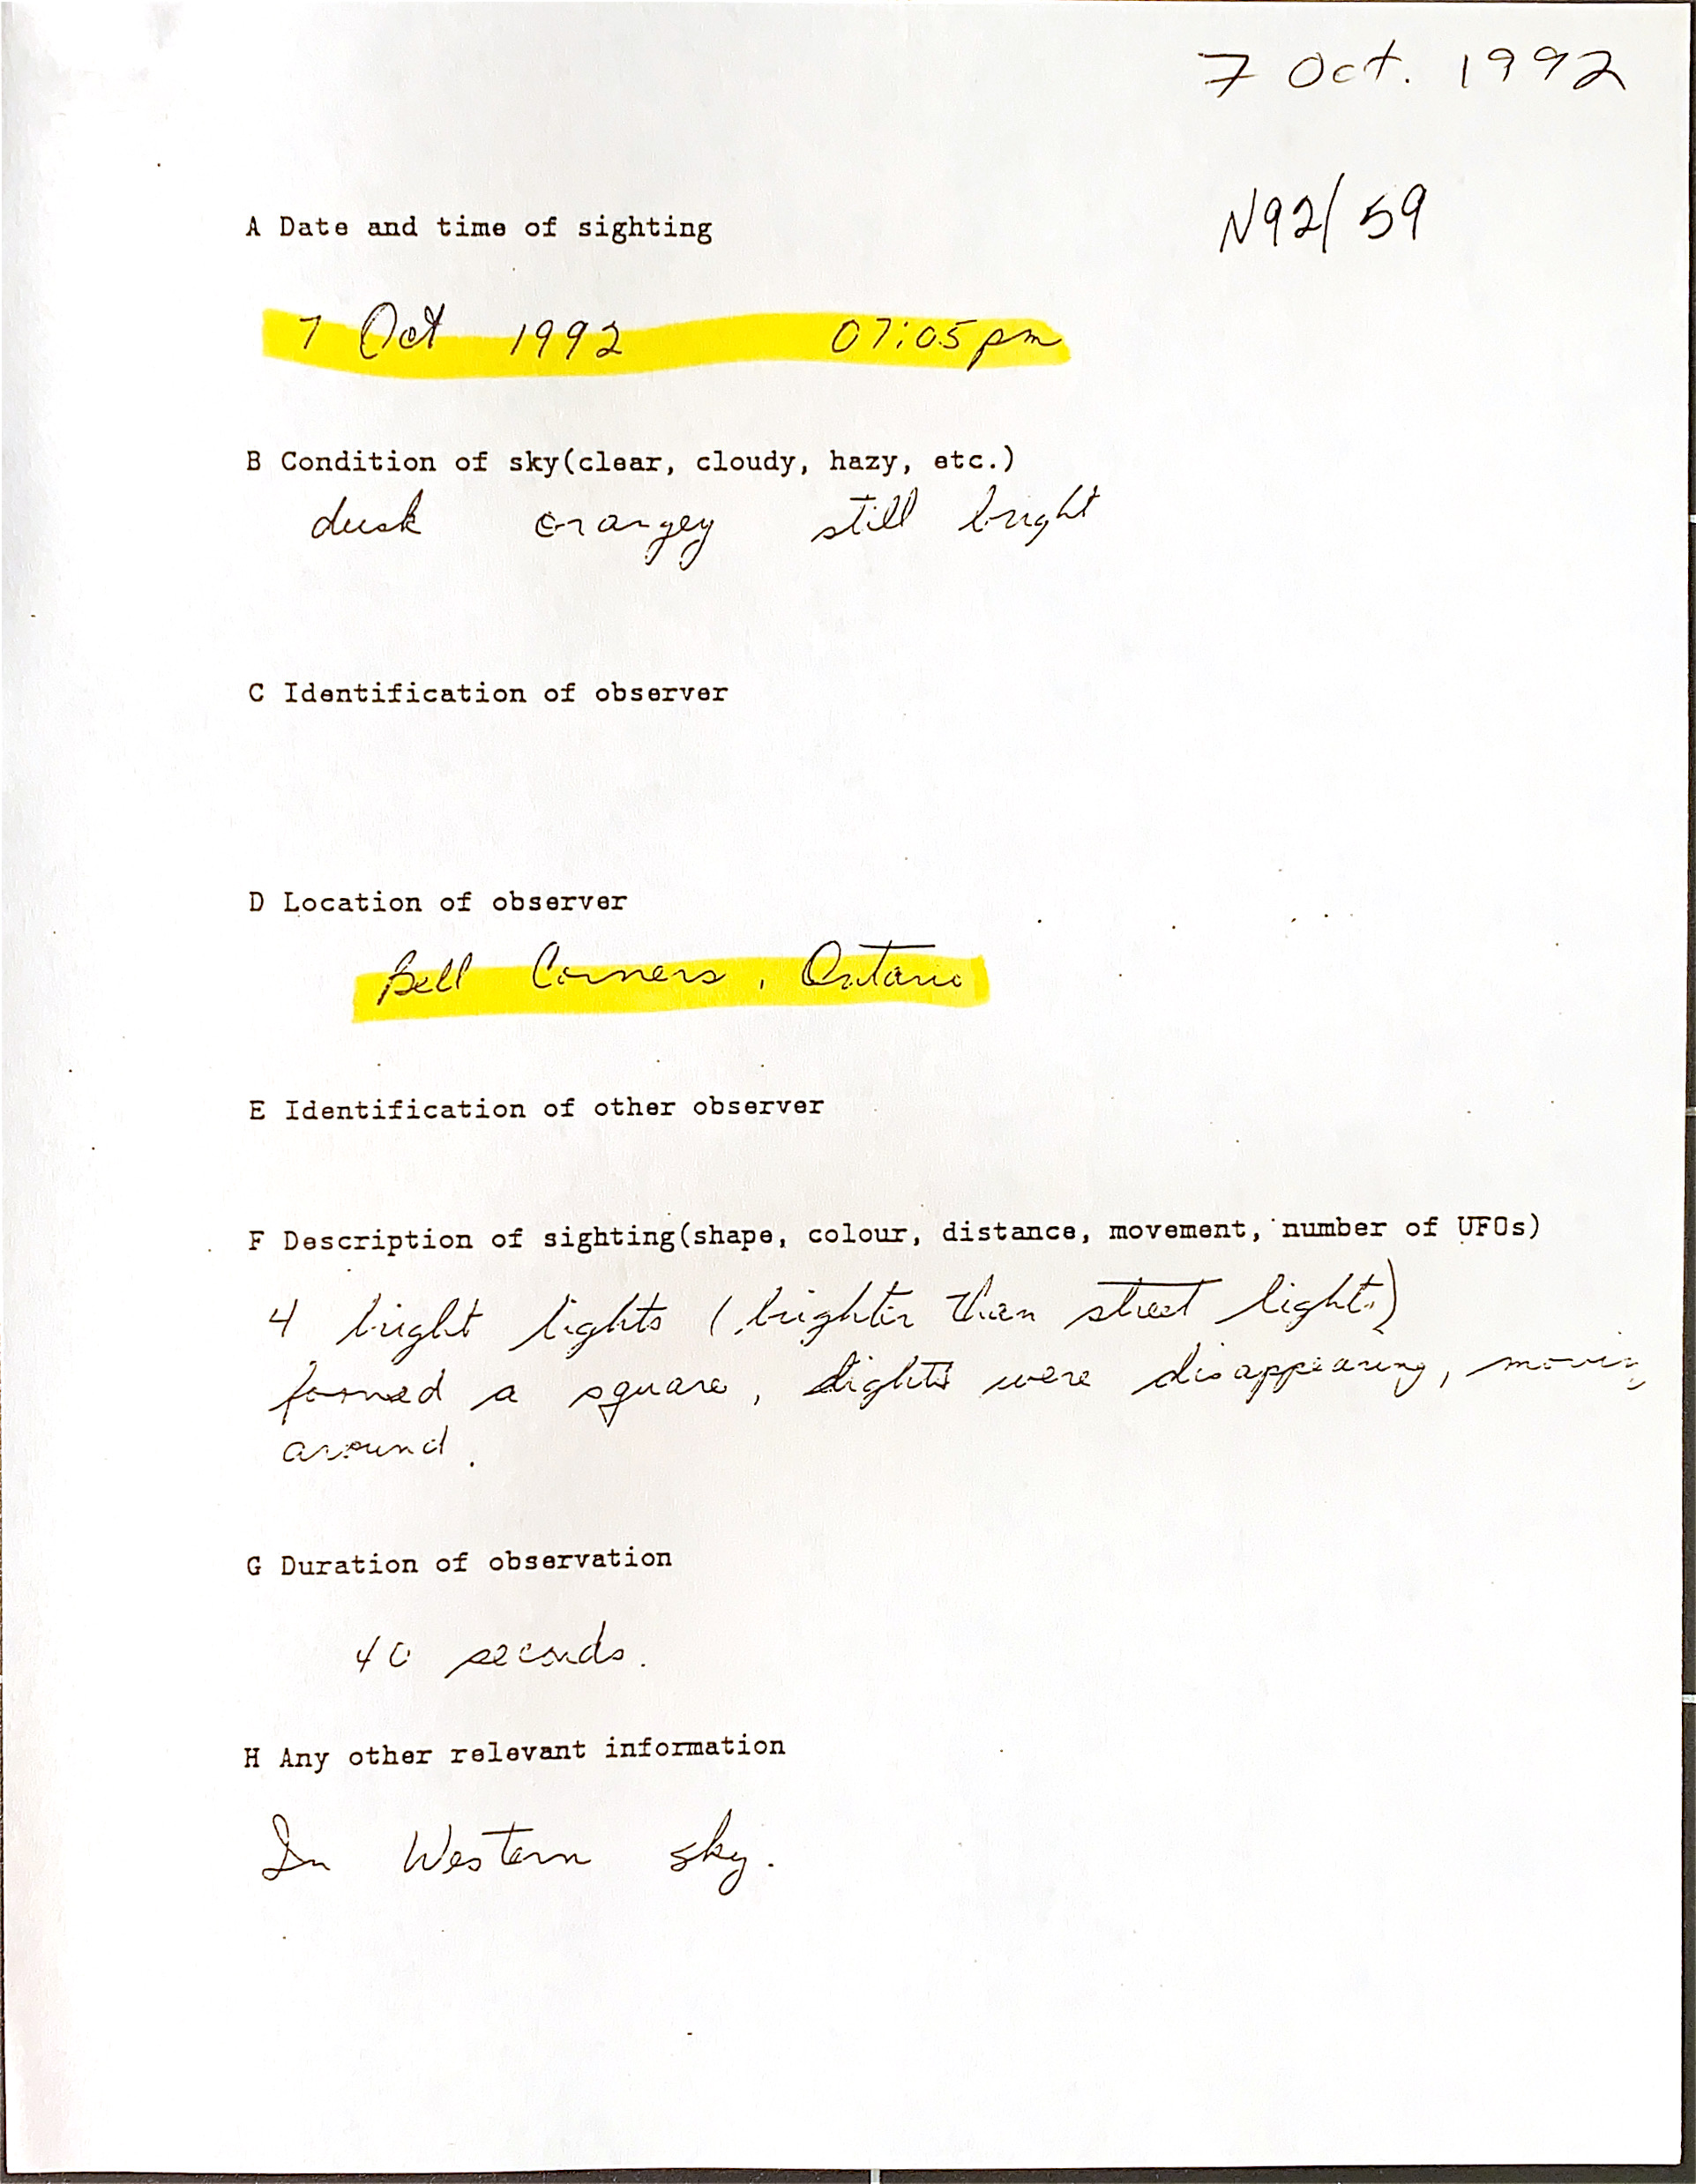 7 Oct. 1992
N92/59
A Date and time of sighting
7 Oct 1992 07:05pm
B Condition of sky(clear, cloudy, hazy, etc.)
dusk orangey still bright
C Identification of observer
D Location of observer
Bell Corners, Ontario
E Identification of other observer
F Description of sighting(shape, colour, distance, movement, number of UFOs)
4 bright lights (brighter than street light)
formed a square, lights were disappearing, moving
around.
G Duration of observation
40 seconds.
H Any other relevant information
In Western sky.